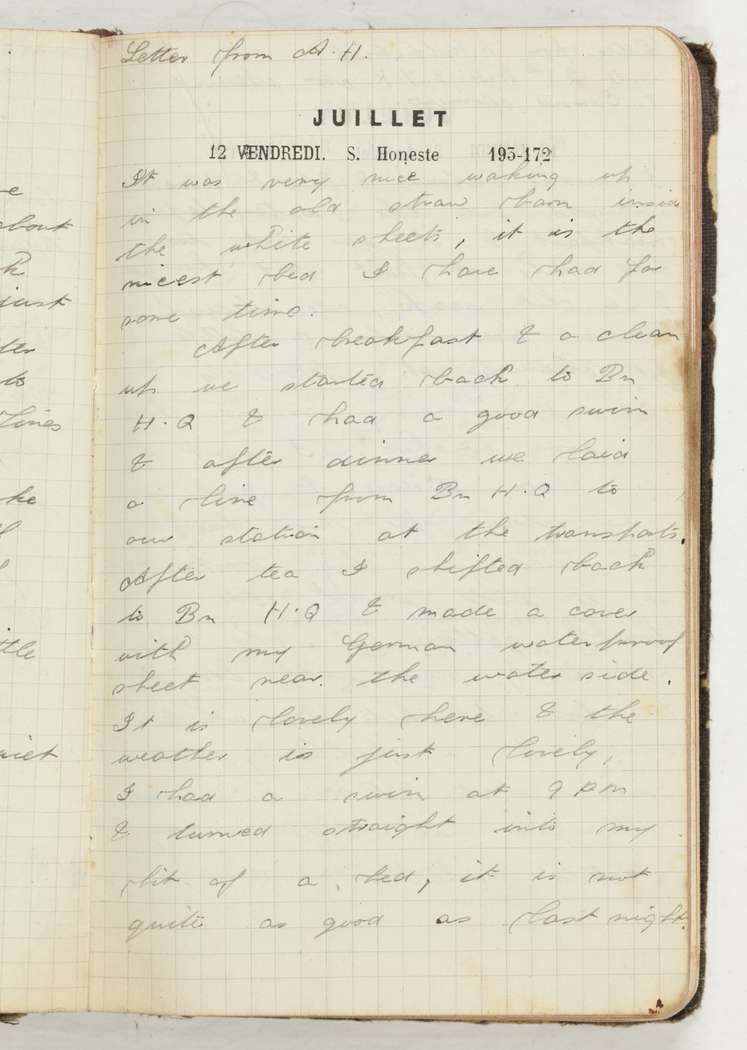 Letter from A.H.
JUILLET
12 VENDREDI. S. Honeste 193-172
It was very nice waking up
in the old straw barn inside
the white sheets, it is the
nicest bed I have had for
some time.
After breakfast & a clean
up we started back to Bn
H.Q & had a good swim
& after dinner we laid
a line from Bn H.Q to
our station at the transports.
After tea I shifted back
to Bn H.Q & made a cover
with my German waterproof
sheet near the water side.
It is lovely here & the
weather is just lovely,
I had a swim at 9 pm
& turned straight into my
bit of a bed, it is not
quite as good as last night.
about
just
to
lines